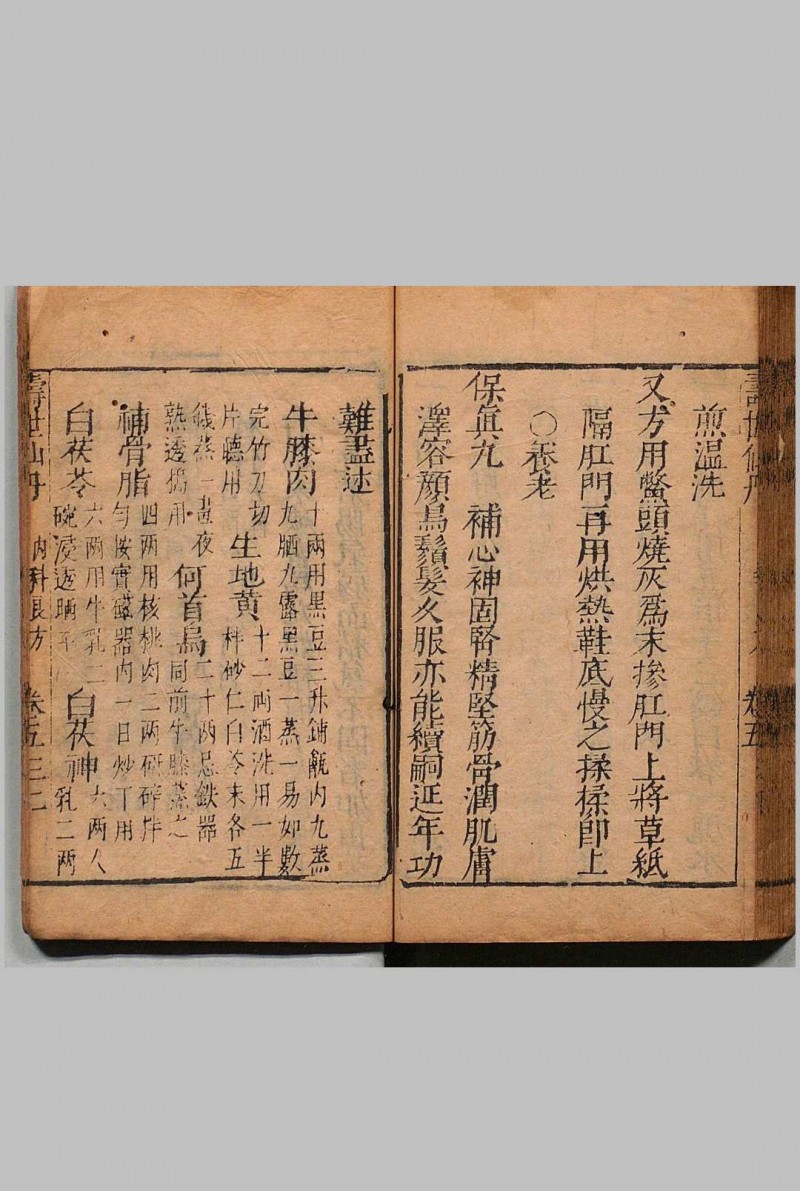 壽世仙丹 卷五
煎溫洗
又方用鱉頭燒灰爲末摻肛門上將草紙
隔肛門再用烘熱鞋底慢之揉揉卽上
○養老
保眞丸 補心神固腎精堅筋骨潤肌膚
澤容顏烏鬚髮久服亦能續嗣延年功
難盡述
牛膝肉
十兩用黑豆三升鋪甑內九蒸
九晒九露黑豆一蒸一易如數
完竹刀切
片聽用
生地黃
十二兩酒洗用一半
拌砂仁白苓末各五
錢蒸一晝夜
熟透搗用
何首烏
二十兩忌鉄器
同前牛膝蒸之
補骨脂
四兩用核桃肉二兩砸碎拌
勻按實磁器內一日炒丁用
白茯苓
六兩用牛乳二
碗浸透晒平
白茯神
六兩人
乳二兩
壽世仙丹 內科良方 卷五 三二